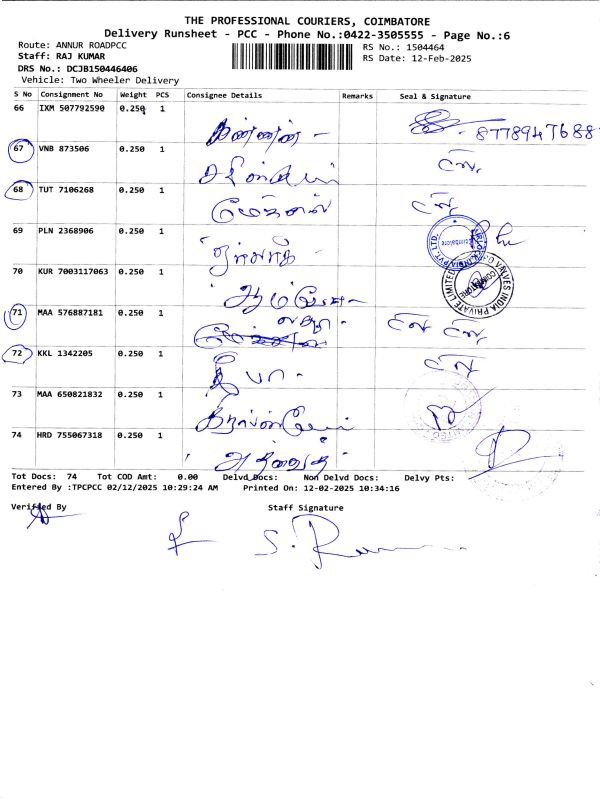 THE PROFESSIONAL COURIERS, COIMBATORE
Delivery Runsheet - PCC - Phone No.:0422-3505555 - Page No.:6
Route: ANNUR ROADPCC RS No.: 1504464
Staff: RAJ KUMAR RS Date: 12-Feb-2025
DRS No.: DCJB150446406
Vehicle: Two Wheeler Delivery
S No Consignment No Weight PCS Consignee Details Remarks Seal & Signature
66 IXM 507792590 0.250 1 கண்ணன் - 8778947688
67 VNB 873506 0.250 1
68 TUT 7106268 0.250 1
69 PLN 2368906 0.250 1
70 KUR 7003117063 0.250 1
71 MAA 576887181 0.250 1
72 KKL 1342205 0.250 1 தீபா -
73 MAA 650821832 0.250 1
74 HRD 755067318 0.250 1
Tot Docs: 74 Tot COD Amt: 0.00 Delvd Docs: Non Delvd Docs: Delvy Pts:
Entered By :TPCPCC 02/12/2025 10:29:24 AM Printed On: 12-02-2025 10:34:16
Verified By Staff Signature